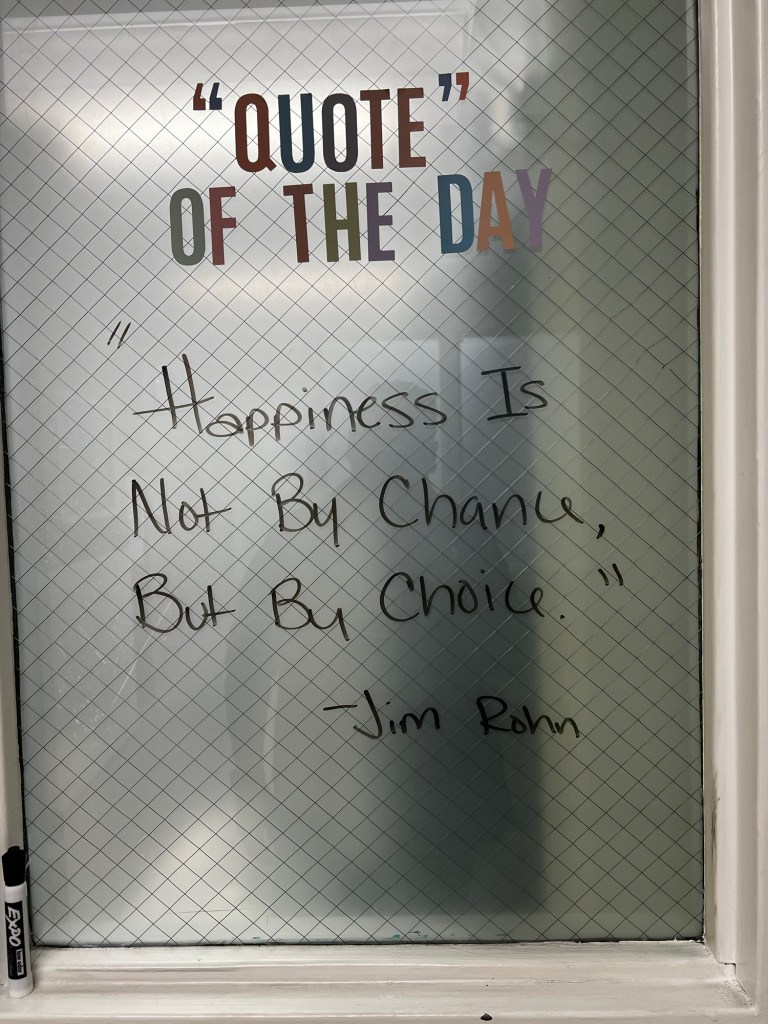 “QUOTE”
OF THE DAY
"Happiness Is
Not By Chance,
But By Choice."
-Jim Rohn
EXPO